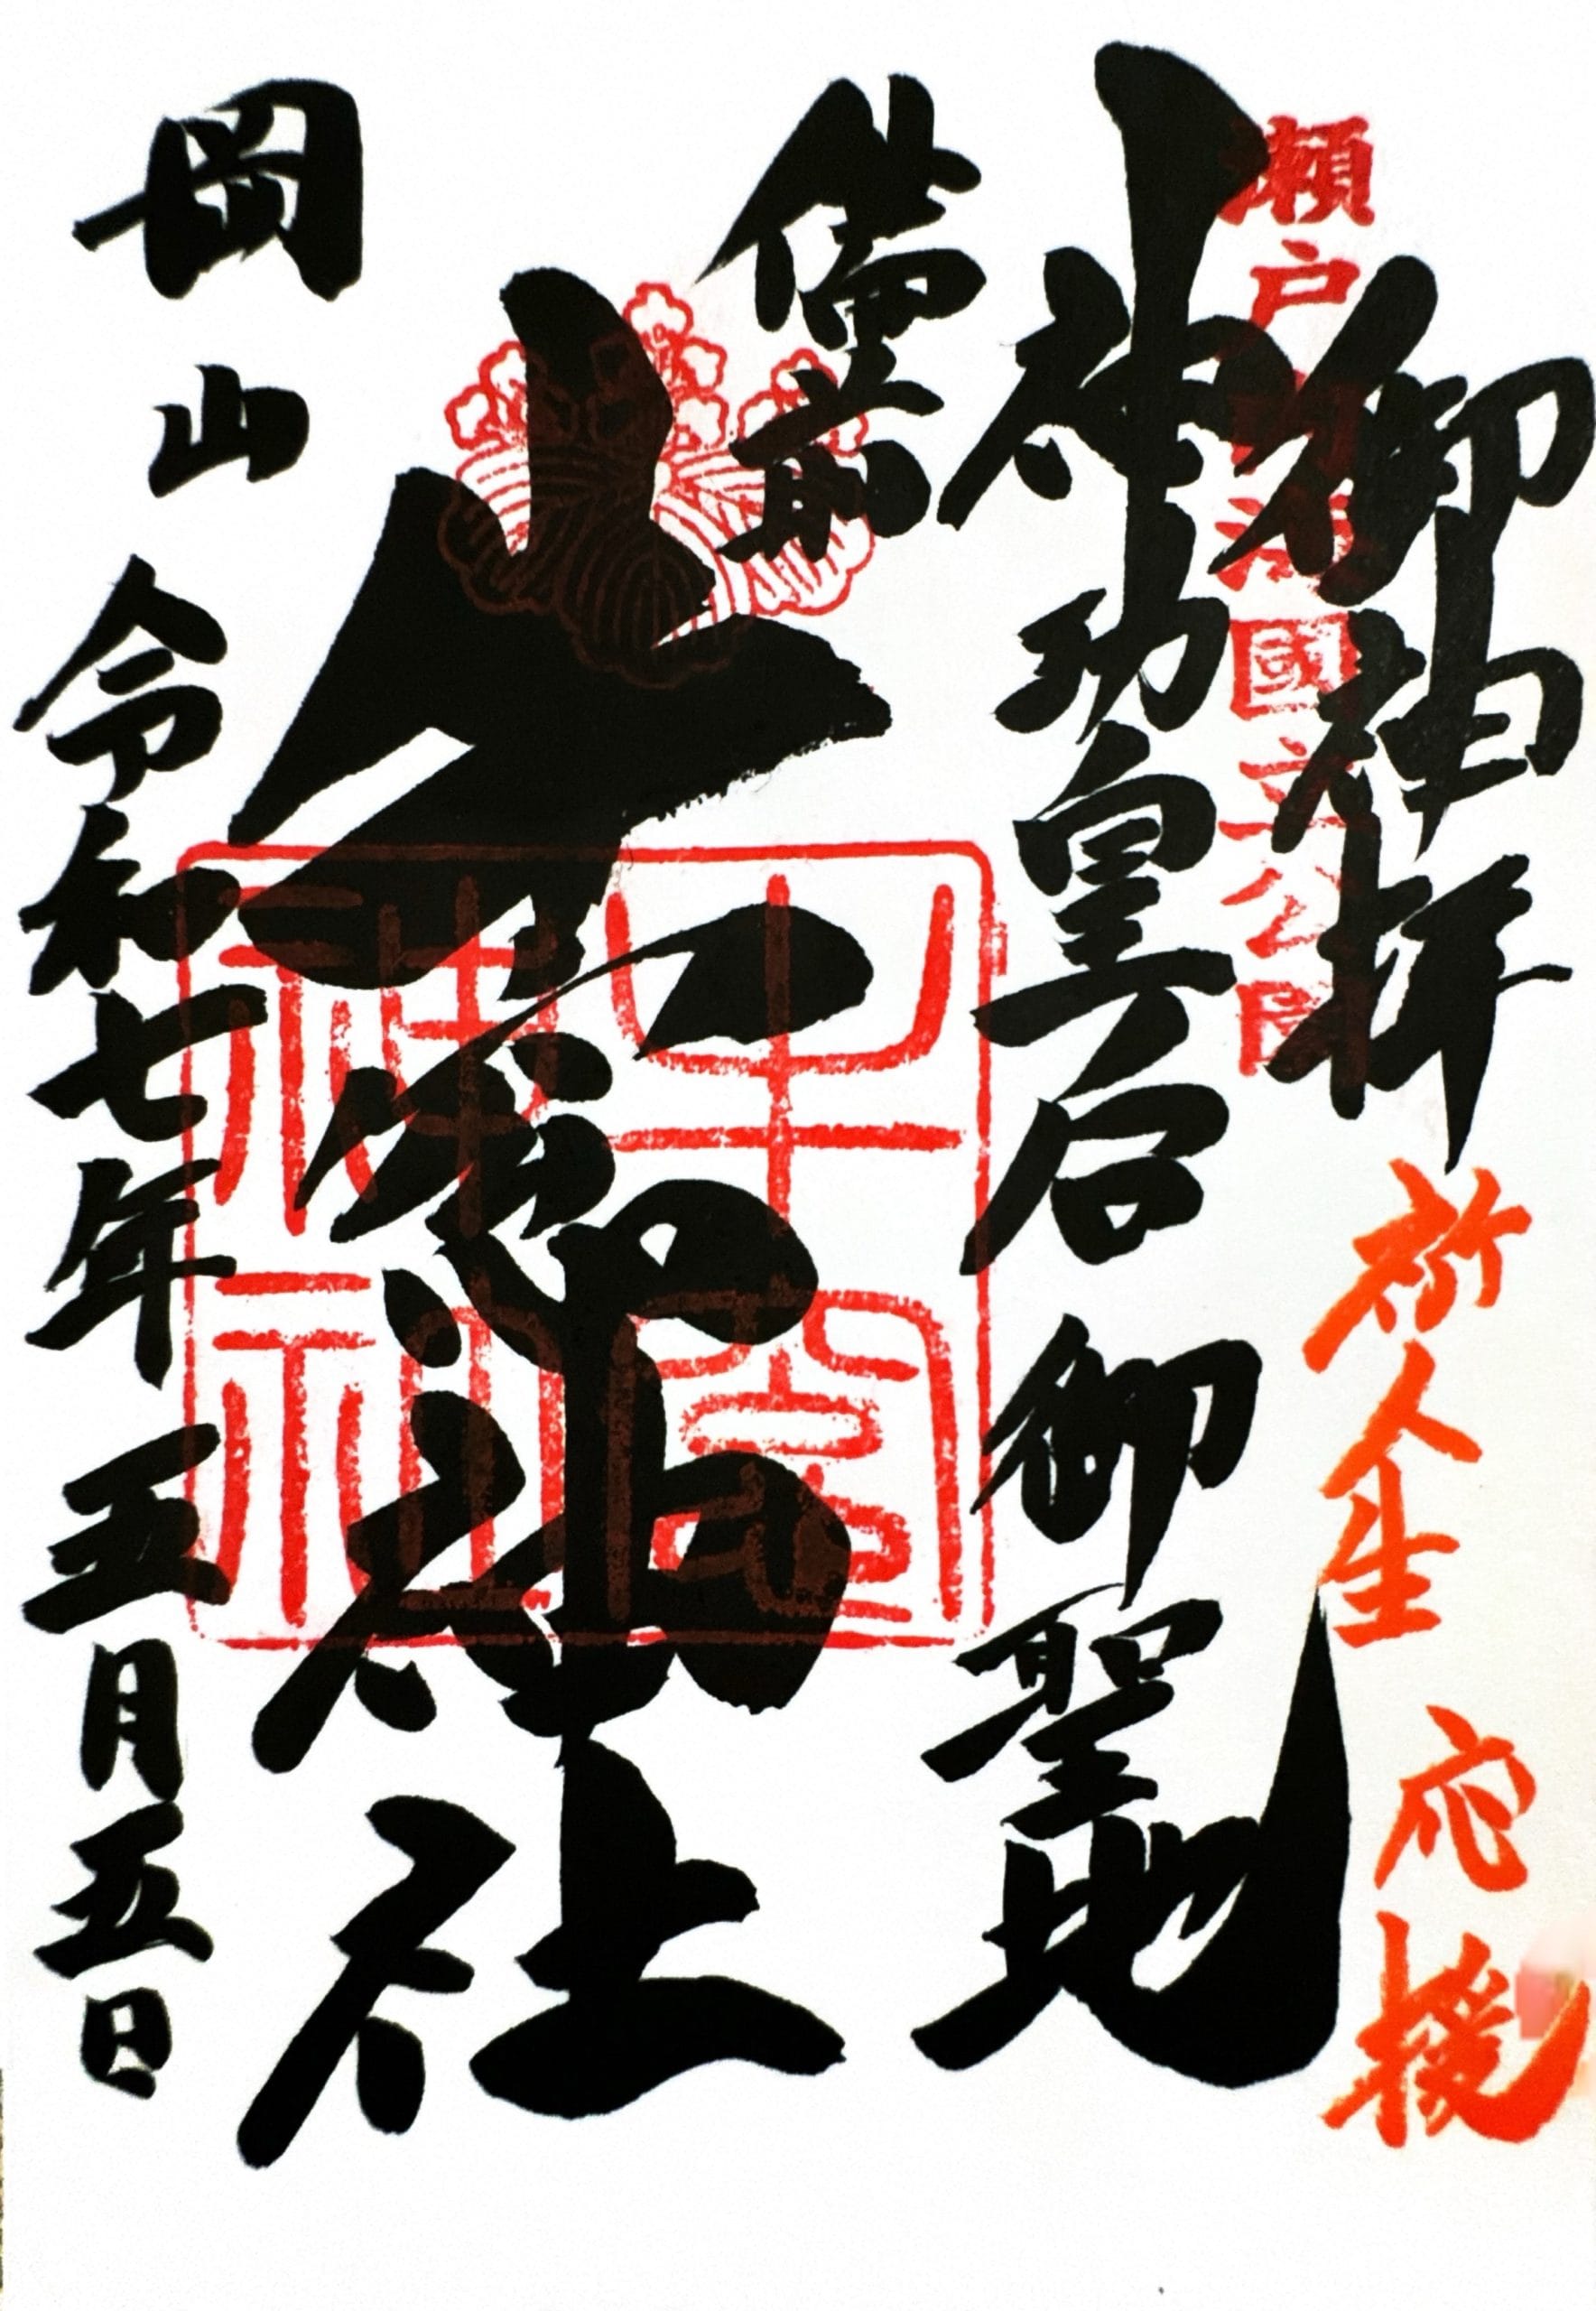 御神拝
祈人生 応援
瀬戸内海國立公園
神功皇后 御聖地
備前
牛窓神社
牛窓神社
岡山 令和七年 五月五日